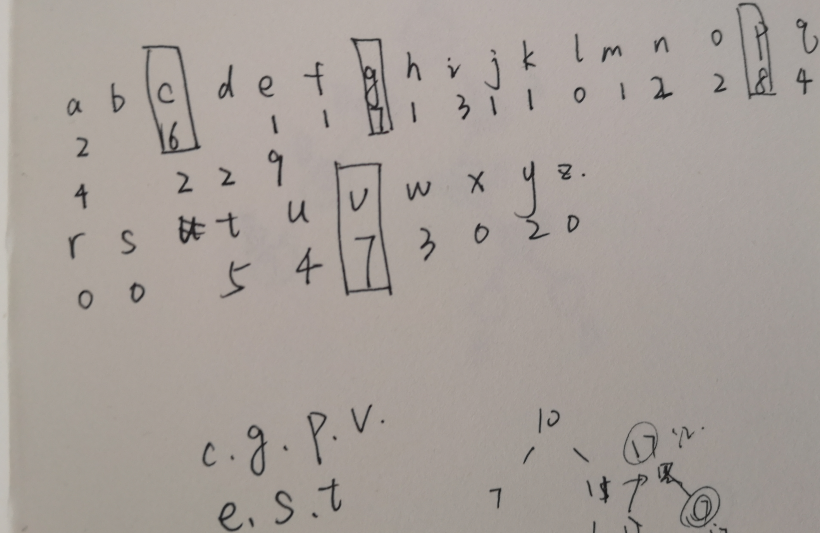 a b c d e f g h i j k l m n o p q
2 6 1 1 7 1 3 1 1 0 1 2 2 8 4
4 2 2 9
r s t u v w x y z.
0 0 5 4 7 3 0 2 0
c.g.p.v.
e.s.t
10
17
7